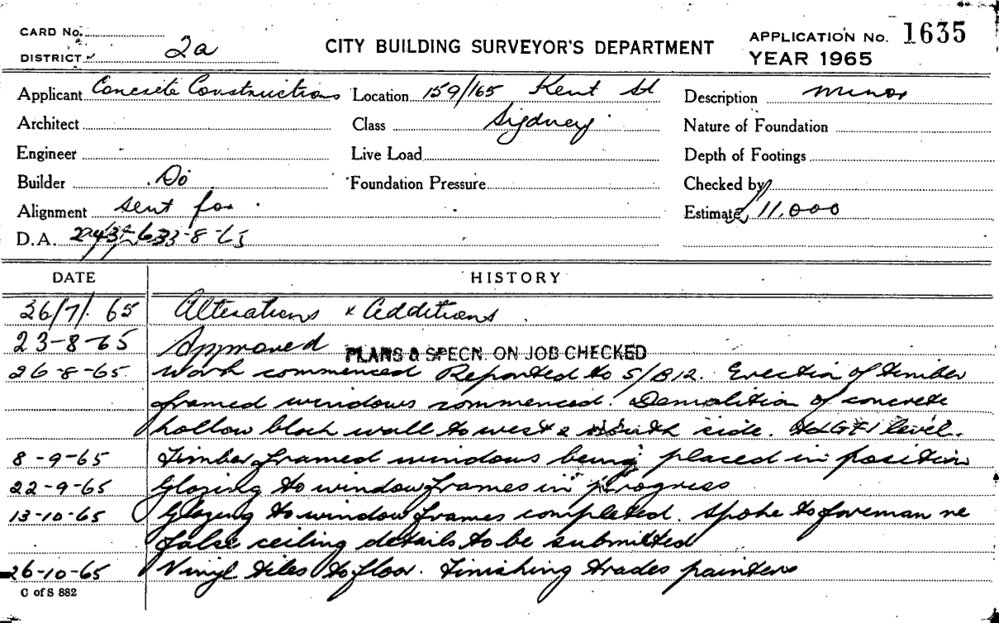 CARD No.
DISTRICT 2a
CITY BUILDING SURVEYOR'S DEPARTMENT
APPLICATION No. 1635
YEAR 1965
Applicant Concrete Constructions Location 159/165 Kent St Description minor
Architect Class Sydney Nature of Foundation
Engineer Live Load Depth of Footings
Builder Do Foundation Pressure Checked by
Alignment sent for Estimate £11,000
D.A. 3-8-65
DATE HISTORY
26/7/65 Alterations & additions
23-8-65 Approved PLANS & SPECN. ON JOB CHECKED
26-8-65 Work commenced Reported to S/B12. Erection of timber
framed windows commenced. Demolition of concrete
hollow block wall to west & side. level.
8-9-65 Timber framed windows being placed in position
22-9-65 Glazing to window frames in progress
13-10-65 Glazing to window frames completed. Spoke to foreman re
false ceiling details to be submitted
26-10-65 Vinyl tiles to floor. Finishing trades painters
C of S 882